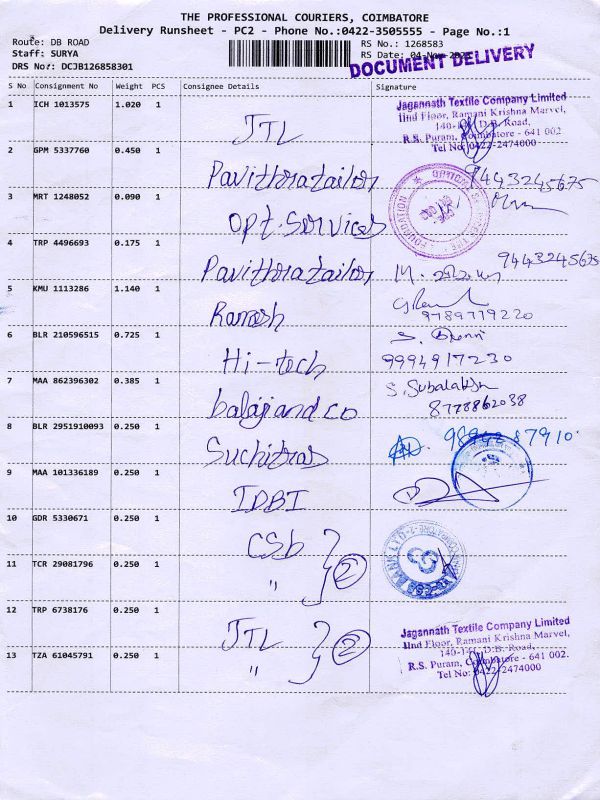 THE PROFESSIONAL COURIERS, COIMBATORE
Delivery Runsheet - PC2 - Phone No.:0422-3505555 - Page No.:1
Route: DB ROAD
Staff: SURYA
DRS No#: DCJB126858301
RS No.: 1268583
RS Date: 04-Nov-
DOCUMENT DELIVERY
S No Consignment No Weight PCS Consignee Details Signature
1 ICH 1013575 1.020 1 JTL
Jagannath Textile Company Limited
IInd Floor, Ramani Krishna Marvel,
140- D.B. Road,
R.S. Puram, Coimbatore - 641 002
Tel No: 0422-2474000
2 GPM 5337760 0.450 1 Pavithratailor 9443245675
3 MRT 1248052 0.090 1 Opt.Services
FOUNDATION
4 TRP 4496693 0.175 1 Pavithratailor 9443245675
5 KMU 1113286 1.140 1 Ramesh 9789779220
6 BLR 210596515 0.725 1 Hi-tech 9994917230
7 MAA 862396302 0.385 1 balajiandco S. Subalak
8778862038
8 BLR 2951910093 0.250 1 Suchitras 9894287910
9 MAA 101336189 0.250 1 IDBI
10 GDR 5330671 0.250 1 CSb
11 TCR 29081796 0.250 1 " 2
12 TRP 6738176 0.250 1 JTL
13 TZA 61045791 0.250 1 " 2
Jagannath Textile Company Limited
IInd Floor, Ramani Krishna Marvel,
140-141, D.B. Road,
R.S. Puram, Coimbatore - 641 002.
Tel No: 0422-2474000